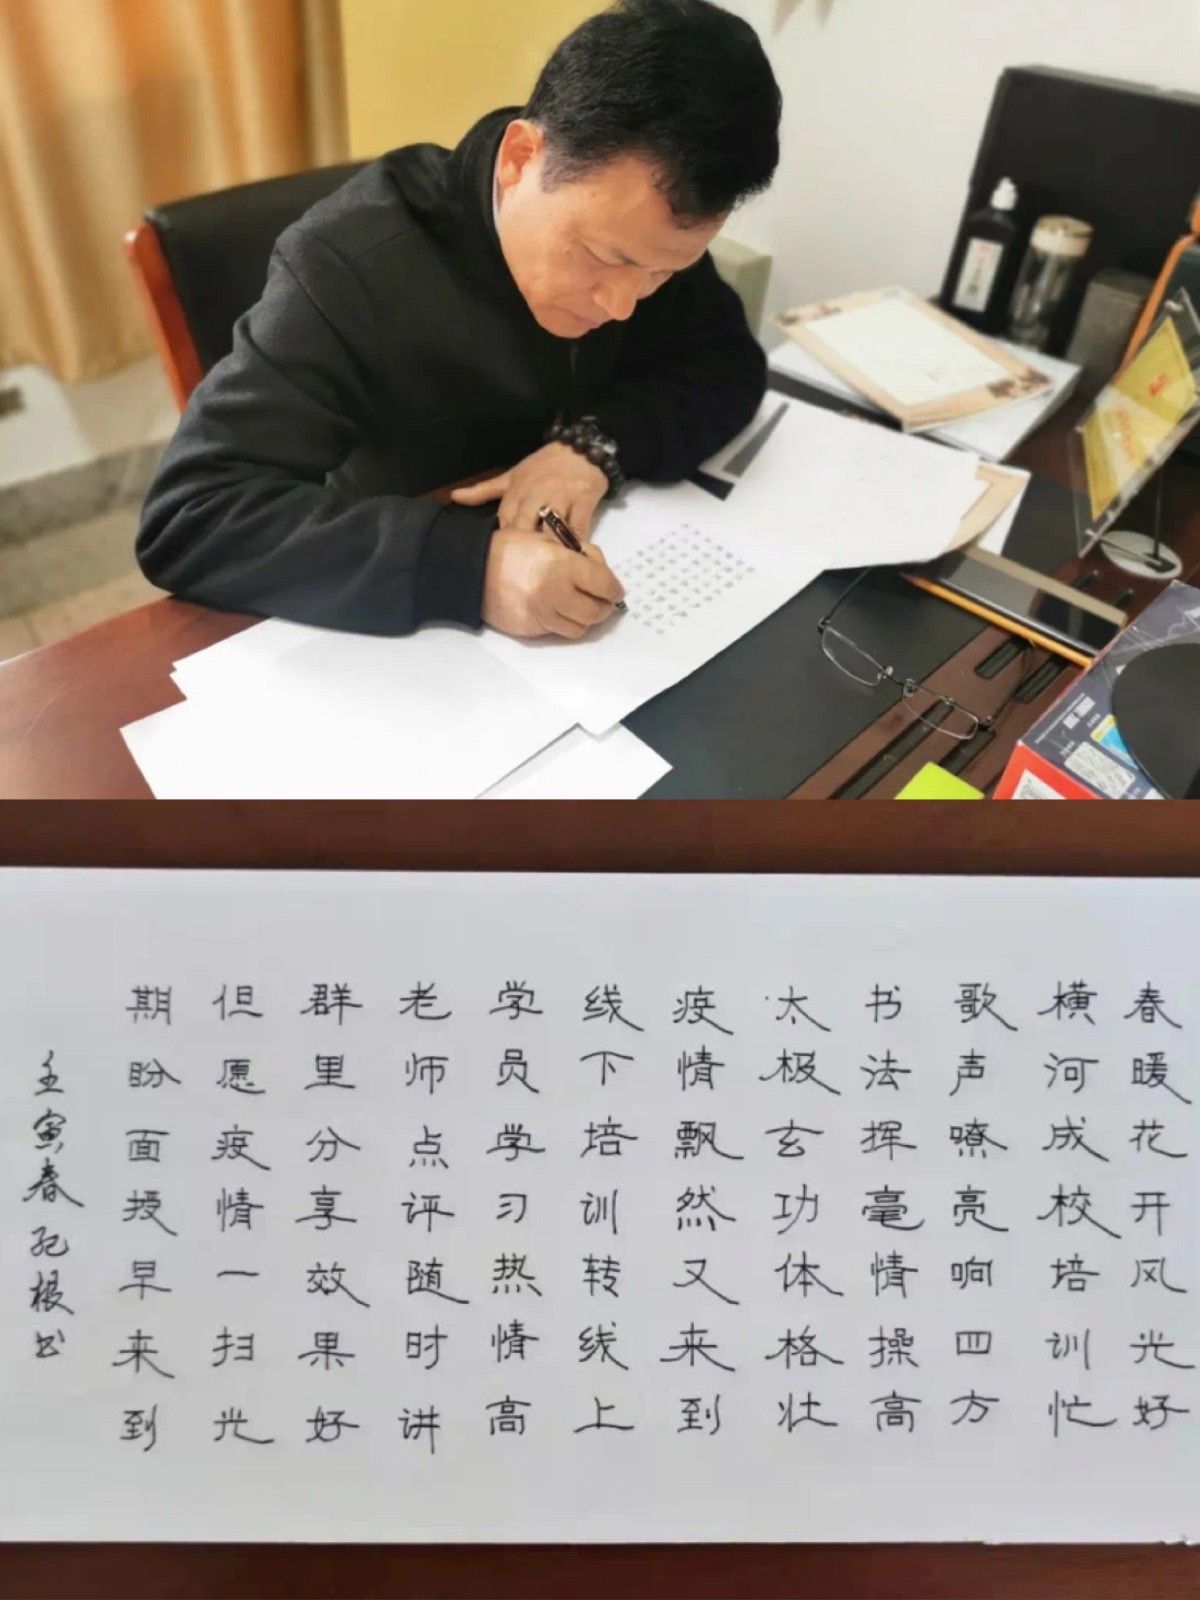 春暖花开风光好
横河成校培训忙
歌声嘹亮响四方
书法挥毫情操高
太极玄功体格壮
疫情飘然又来到
线下培训转线上
学员学习热情高
老师点评随时讲
群里分享效果好
但愿疫情一扫光
期盼面授早来到
壬寅春 根书